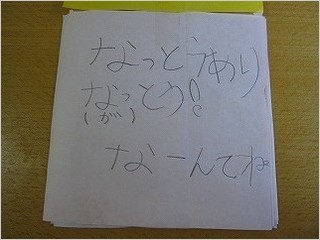 なっとうあり
なっとう!
(が)
なーんてね